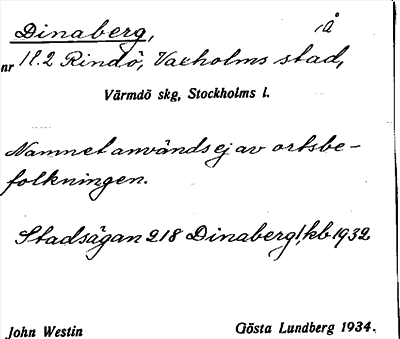 Dinaberg, å
nr 1 l. 2 Rindö, Vaxholms stad,
Värmdö skg, Stockholms l.
Namnet används ej av ortsbe-
folkningen.
Stadsägan 218 Dinaberg l, kb 1932
John Westin Gösta Lundberg 1934.